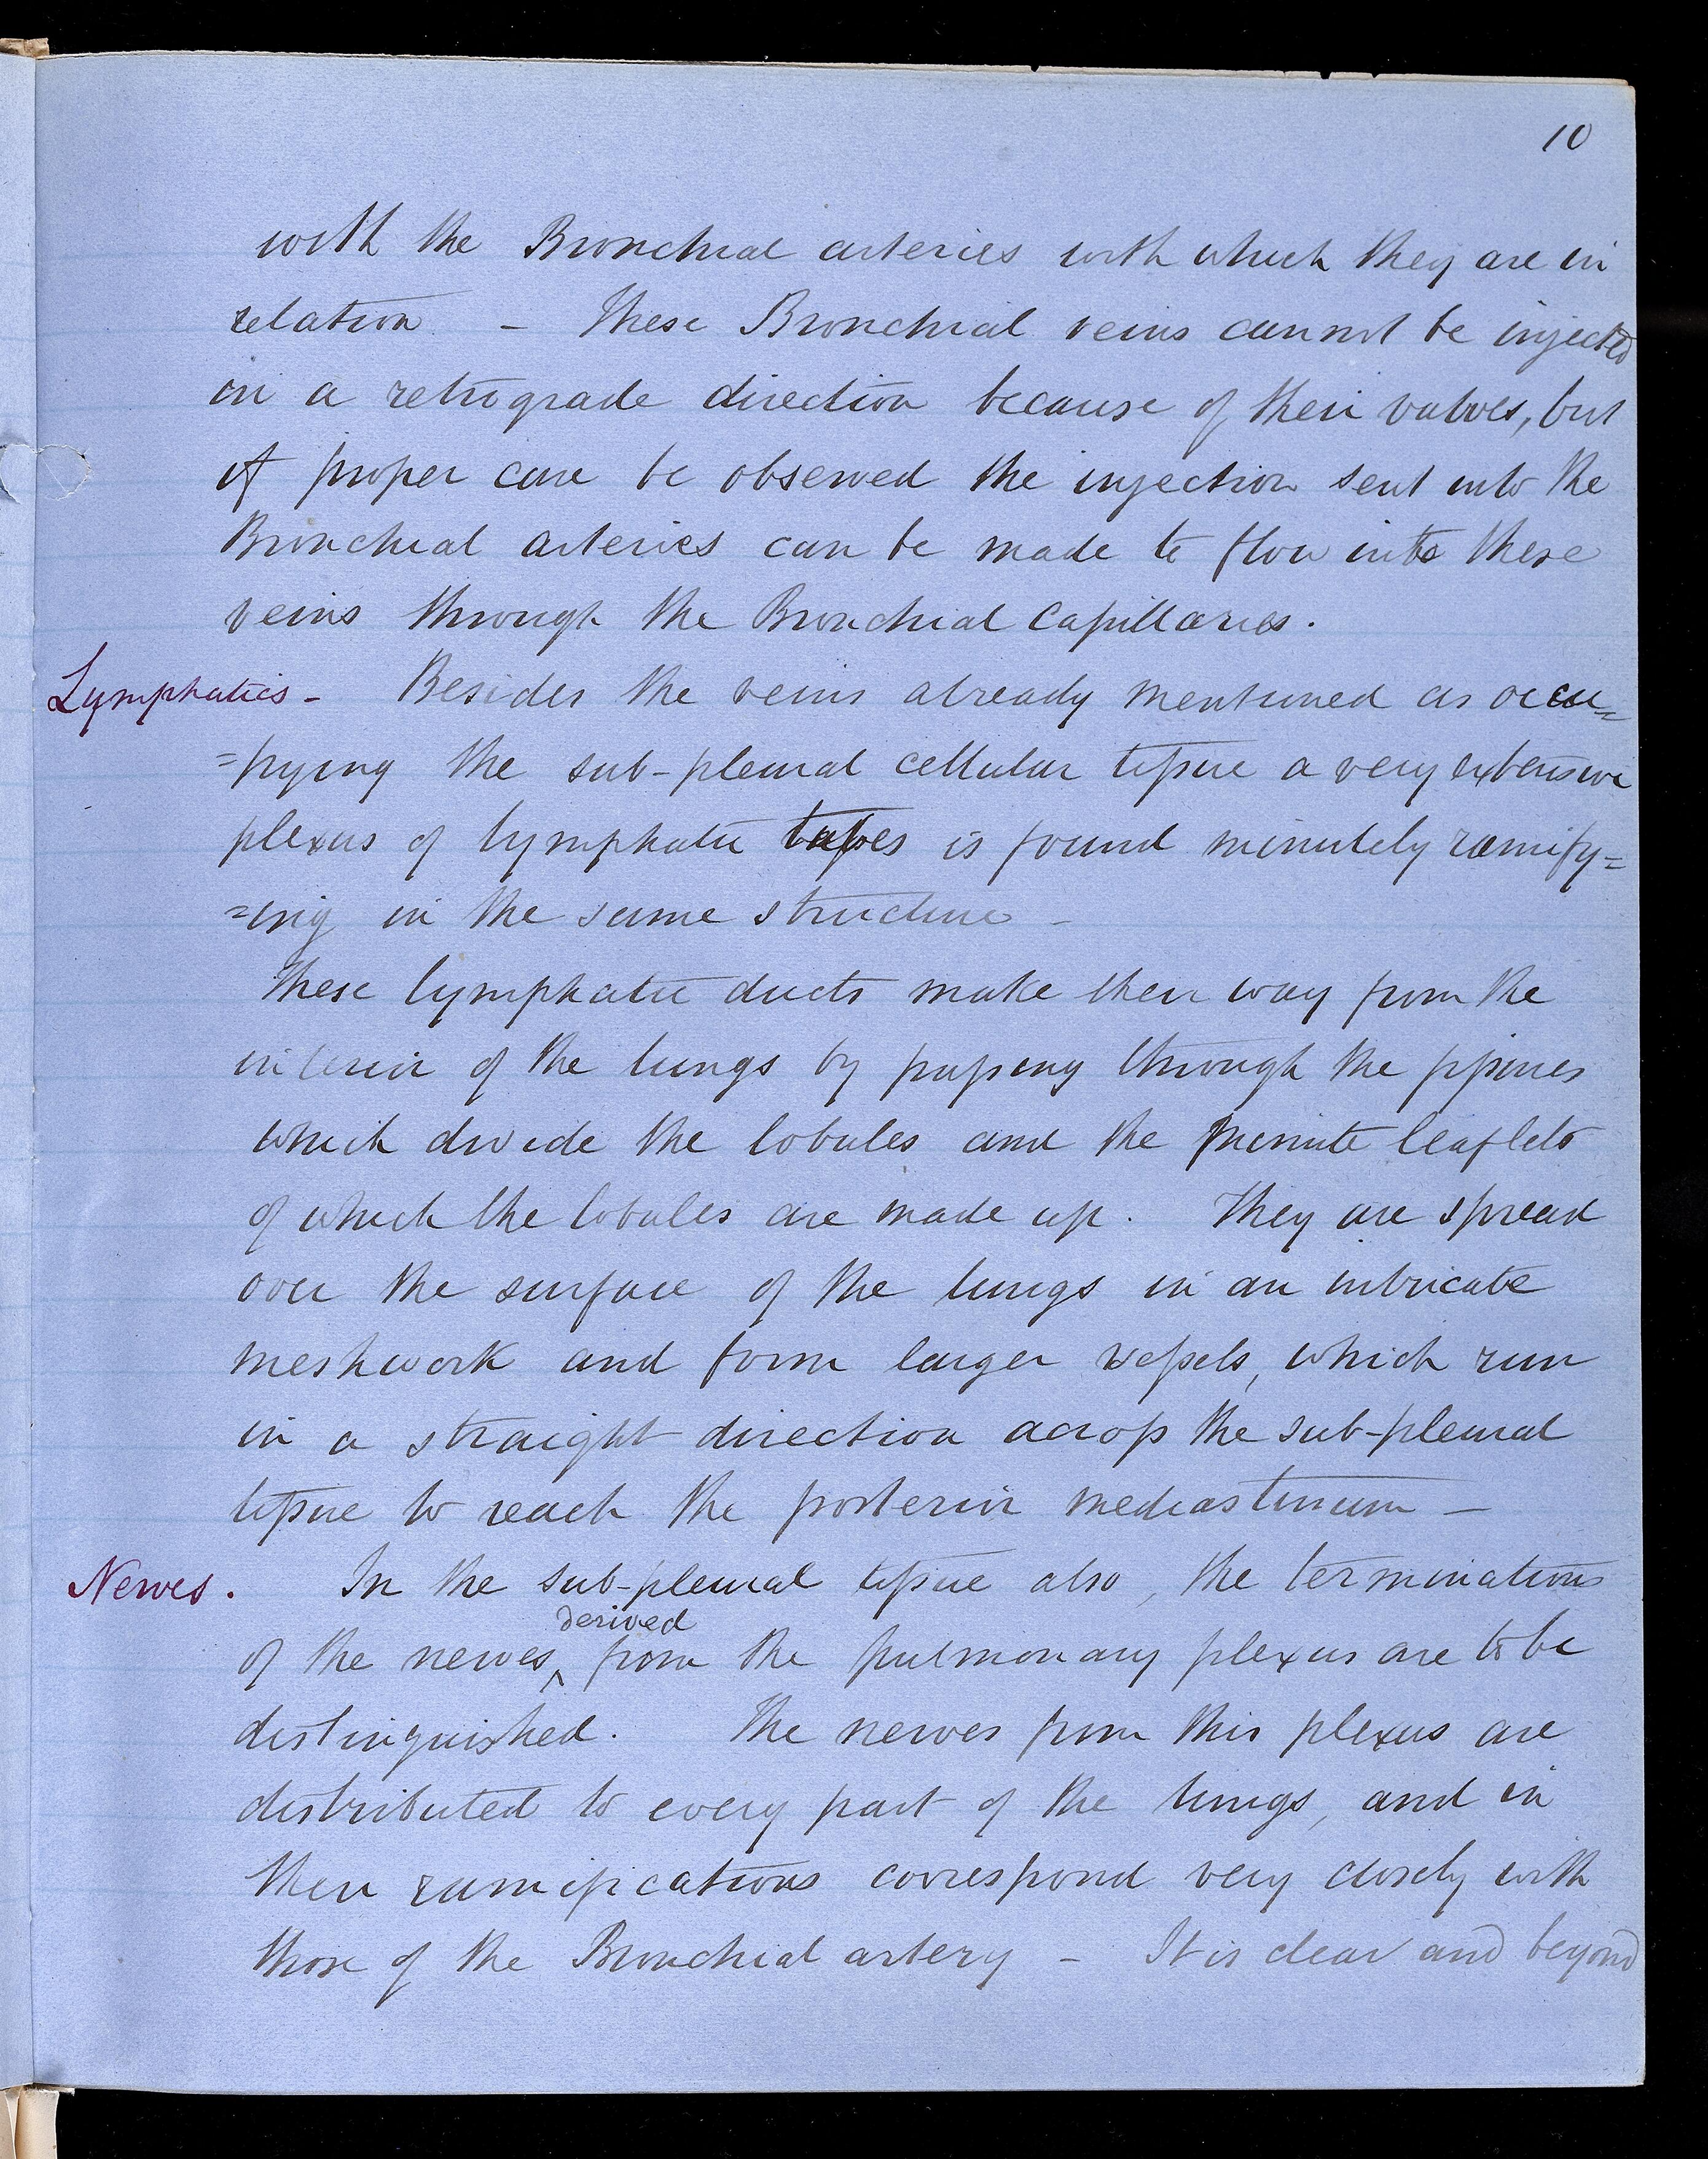 10
with the Bronchial arteries with which they are in
relation - These Bronchial veins cannot be injected
in a retrograde direction because of their valves, but
if proper care be observed the injection sent into the
Bronchial arteries can be made to flow into these
veins through the Bronchial Capillaries.
Lymphatics - Besides the veins already mentioned as occu=
=pying the sub-pleural cellular tissue a very extensive
plexus of lymphatic tubes is found minutely ramify=
=ing in the same structure -
These lymphatic ducts make their way from the
interior of the lungs by passing through the fissures
which divide the lobules and the minute leaflets
of which the lobules are made up. They are spread
over the surface of the lungs in an intricate
meshwork and form larger vessels, which run
in a straight direction across the sub-pleural
tissue to reach the posterior mediastinum -
Nerves. In the sub-pleural tissue also, the terminations
derived
of the nerves ‸ from the pulmonary plexus are to be
distinguished. The nerves from this plexus are
distributed to every part of the lungs, and in
their ramifications correspond very closely with
those of the Bronchial artery - It is clear and beyond